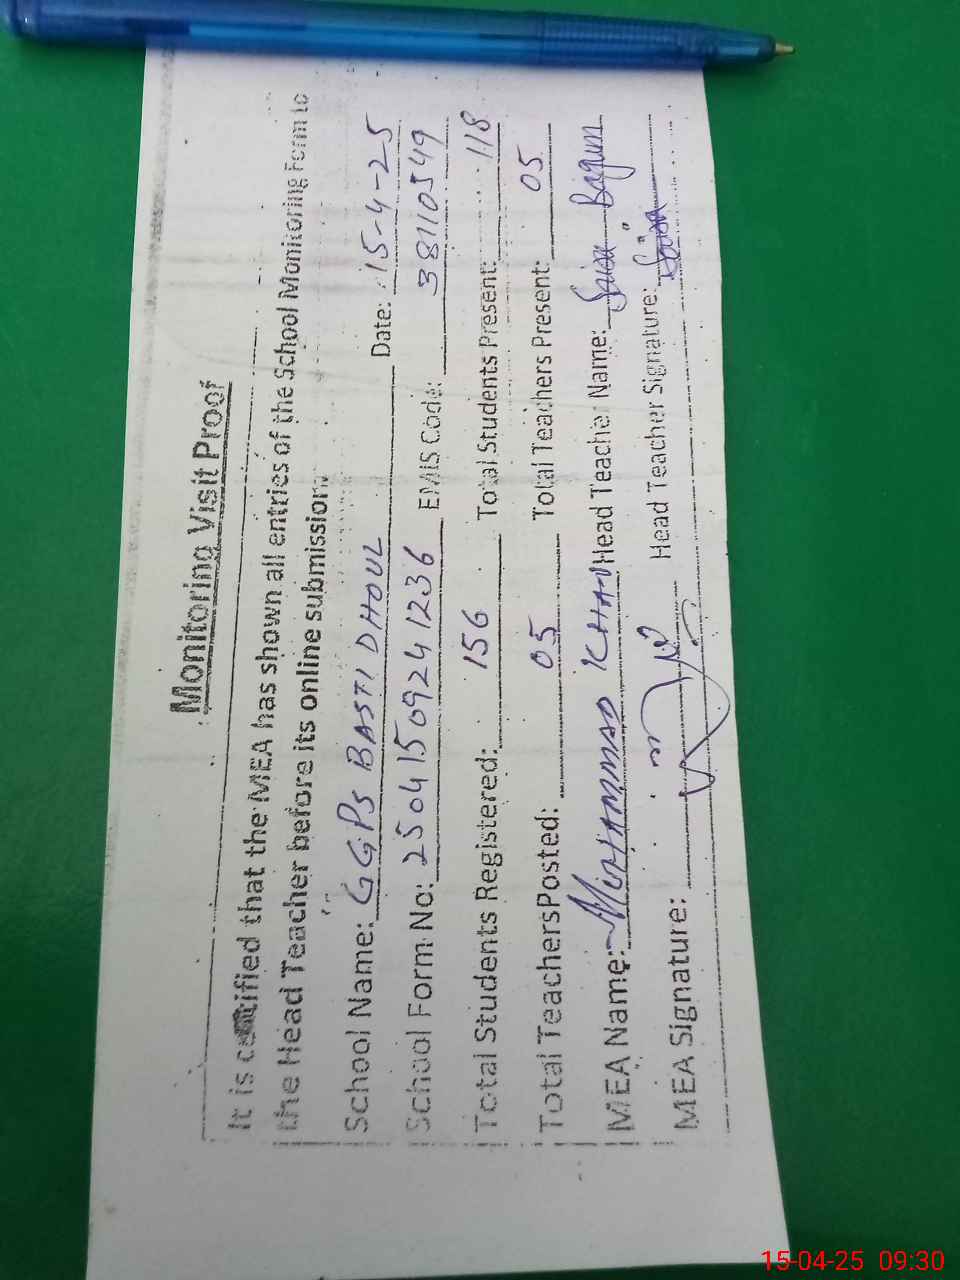 Monitoring Visit Proof
It is certified that the MEA has shown all entries of the School Monitoring Form to
the Head Teacher before its online submission.
School Name: GGPS BASTI DHOUL Date: 15-4-25
School Form No: 25041509241236 EMIS Code: 38110549
Total Students Registered: 156 Total Students Present: 118
Total Teachers Posted: 05 Total Teachers Present: 05
MEA Name: MUHAMMAD KHAN Head Teacher Name: Saira Bagum
MEA Signature: Head Teacher Signature: Saira
15-04-25 09:30